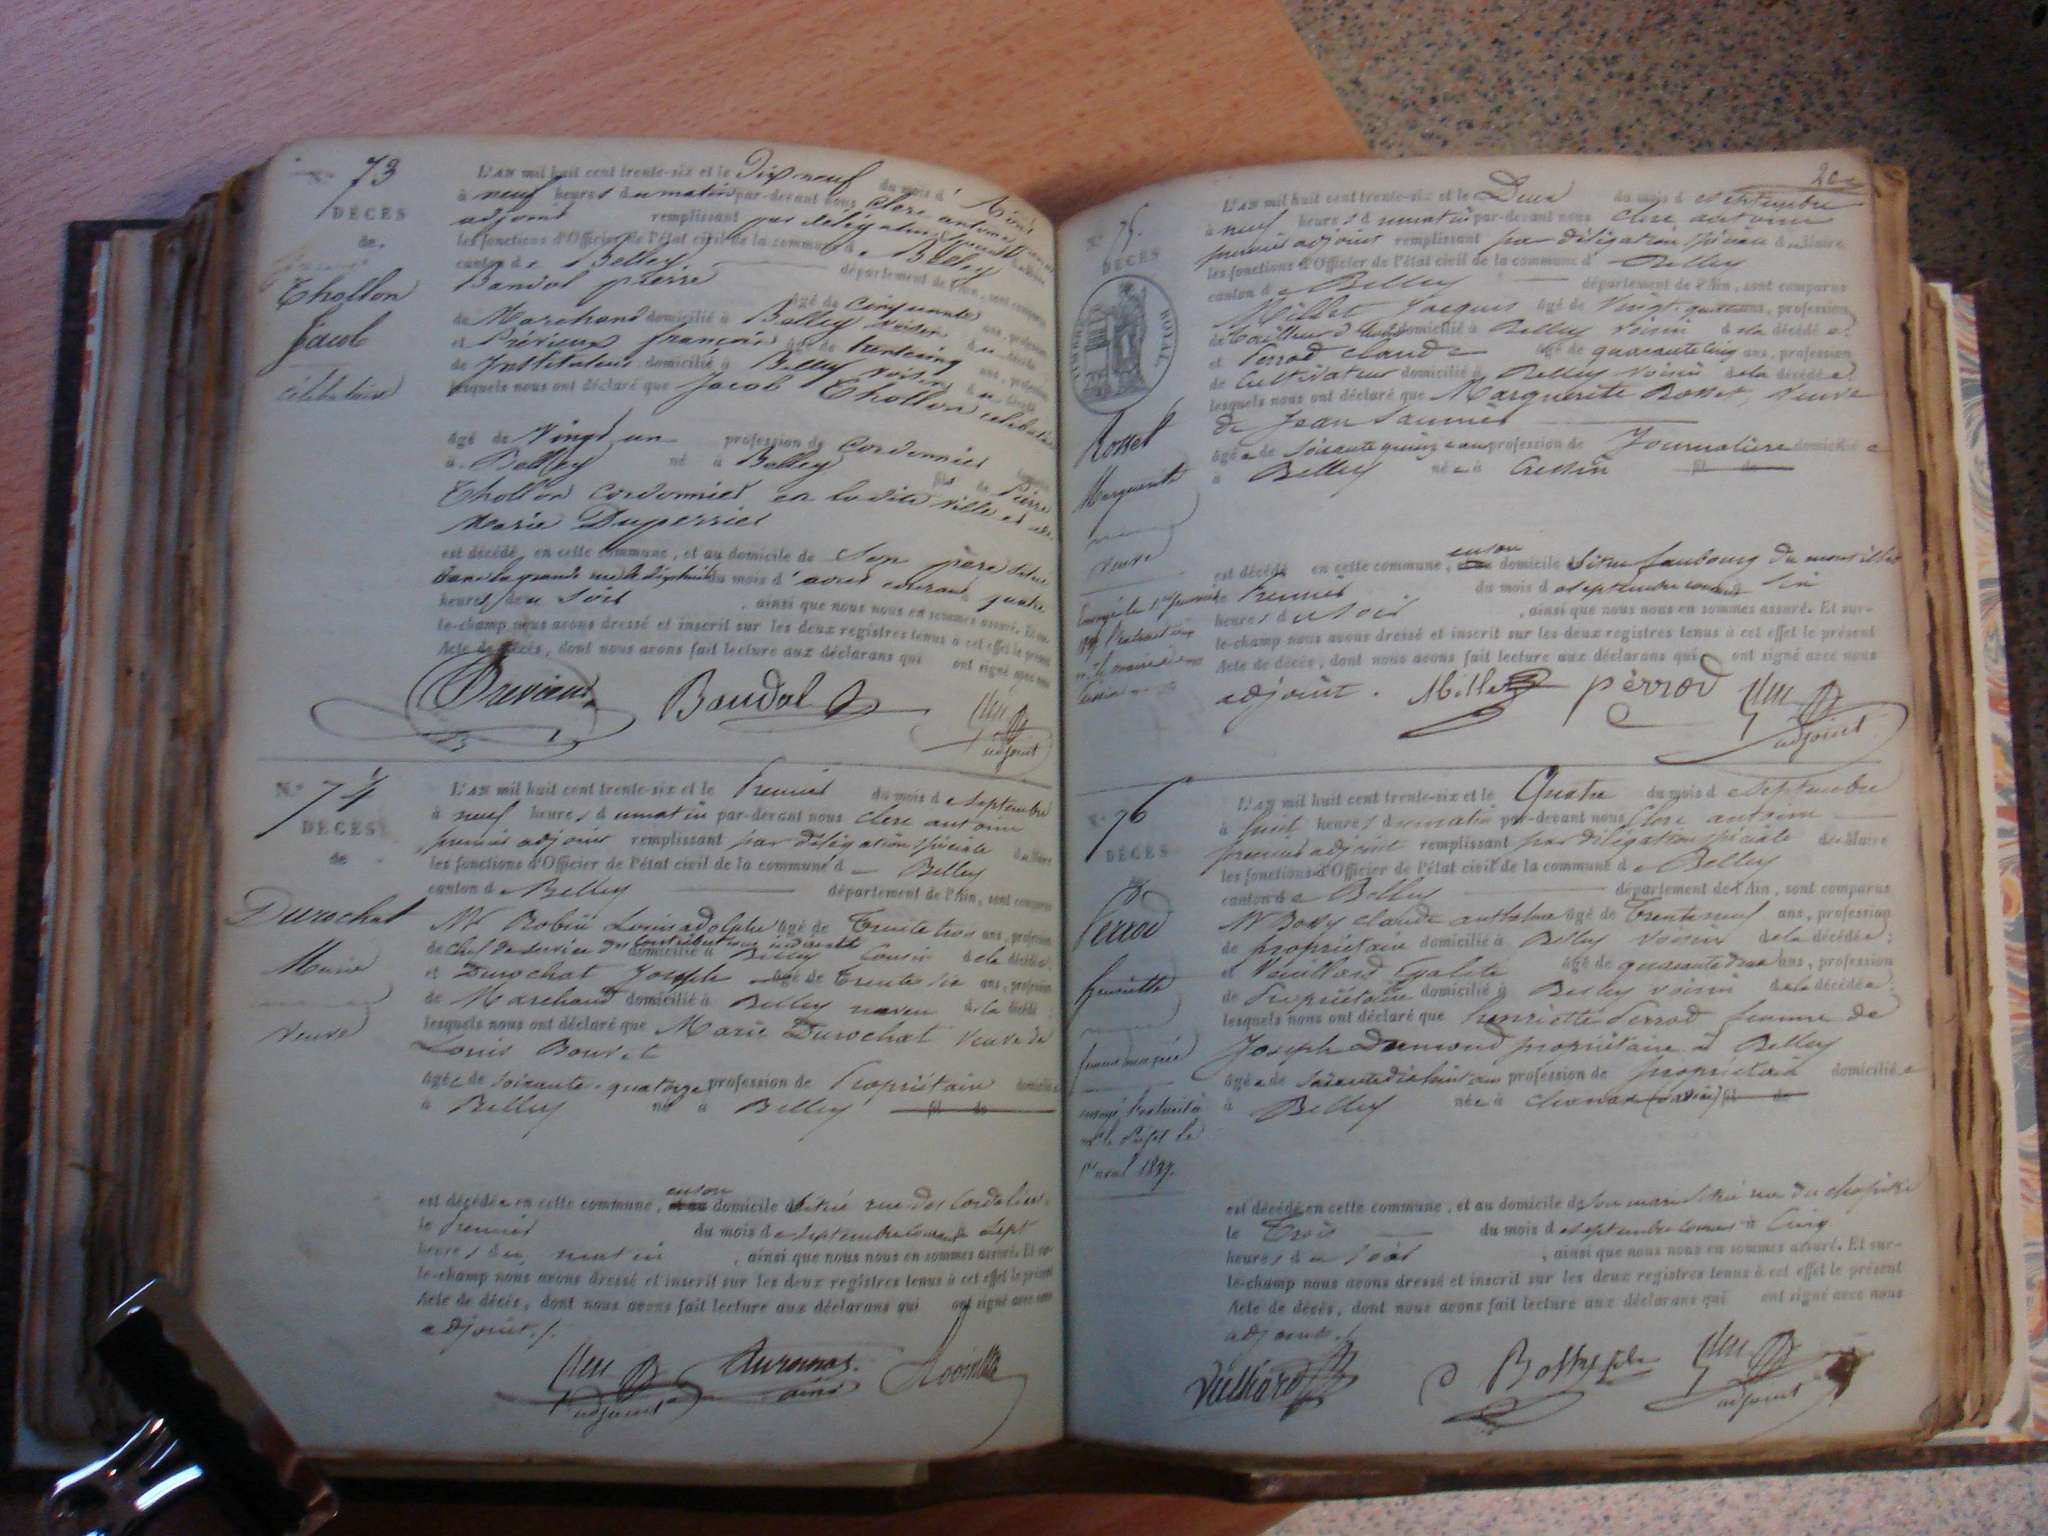 N.° 73
DÉCÈS
de
Thollon
Jacob
célibataire
L'AN mil huit cent trente-six et le Dix neuf du mois d' Août
à neuf heures du matin par-devant nous Clerc antoine
adjoint remplissant par délégation
les fonctions d'Officier de l'état civil de la commune de Belley
canton de Belley département de l'Ain, sont comparus
Bandol pierre âgé de cinquante ans, profession
de Marchand domicilié à Belley voisin du décédé
et Prévieux françois âgé de trente cinq ans, profession
de Instituteur domicilié à Belley voisin du décédé
lesquels nous ont déclaré que Jacob Thollon célibataire
âgé de Vingt un profession de Cordonnier
à Belley né à Belley fils de Pierre
Thollon cordonnier en la dite ville et de
Marie Duperrier
est décédé en cette commune, et au domicile de Son père situé
dans la grande rue le dixhuit du mois d'aout courant à quatre
heures du Soir, ainsi que nous nous en sommes assuré. Et sur-
le-champ nous avons dressé et inscrit sur les deux registres tenus à cet effet le présent
Acte de décès, dont nous avons fait lecture aux déclarans qui ont signé avec nous
Previeux Bandol Clerc
adjoint
N.° 74
DÉCÈS
de
Durochat
Marie
veuve
L'AN mil huit cent trente-six et le Premier du mois de septembre
à neuf heures du matin par-devant nous Clerc antoine
premier adjoint remplissant par délégation spéciale du Maire
les fonctions d'Officier de l'état civil de la commune d Belley
canton de Belley département de l'Ain, sont comparus
Mr Robin Louis adolphe âgé de Trente trois ans, profession
de chef de service des contributions indirectes domicilié à Belley Cousin de la décédée;
et Durochat Joseph âgé de Trente six ans, profession
de Marchand domicilié à Belley neveu de la décédé
lesquels nous ont déclaré que Marie Durochat veuve de
Louis Bouvet
âgée de soixante-quatorze profession de Propriétaire domicilié
à Belley né à Belley fil de
est décédée en cette commune, en son domicile situé rue des Cordeliers
le Premier du mois de septembre courant à sept
heures du matin, ainsi que nous nous en sommes assuré. Et sur-
le-champ nous avons dressé et inscrit sur les deux registres tenus à cet effet le présent
Acte de décès, dont nous avons fait lecture aux déclarans qui ont signé avec nous
adjoint./.
Clerc
adjoint ainé
20
N.° 75.
DÉCÈS
TIMBRE ROYAL
Rosset
Marguerite
veuve
L'AN mil huit cent trente-six et le Deux du mois de septembre
à neuf heures du matin par-devant nous Clerc antoine
premier adjoint remplissant par délégation spéciale du Maire
les fonctions d'Officier de l'état civil de la commune d' Belley
canton de Belley département de l'Ain, sont comparus
Millet Jacques âgé de Vingt-quatre ans, profession
de tailleur d'habits domicilié à Belley voisin de la décédée;
et Perrod claude âgé de quarante cinq ans, profession
de Cultivateur domicilié à Belley voisin de la décédée;
lesquels nous ont déclaré que Marguerite Rosset, Veuve
de Jean Saunier
âgée de soixante quinze ans profession de Journalière domiciliée
à Belley née à Cressin fil de
est décédé en cette commune, en son domicile situé faubourg du
le Premier du mois de septembre courant à six
heures du soir, ainsi que nous nous en sommes assuré. Et sur-
le-champ nous avons dressé et inscrit sur les deux registres tenus à cet effet le présent
Acte de décès, dont nous avons fait lecture aux déclarans qui ont signé avec nous
adjoint. Millet perrod Clerc
adjoint
N.° 76
DÉCÈS
de
Perrod
henriette
femme mariée
envoyé l'extrait à
Mr le Préfet le
1er avril 1837.
L'AN mil huit cent trente-six et le Quatre du mois de septembre
à huit heures du matin par-devant nous Clerc antoine
premier adjoint remplissant par délégation spéciale du Maire
les fonctions d'Officier de l'état civil de la commune de Belley
canton de Belley département de l'Ain, sont comparus
Mr Bossy claude anthelme âgé de Trente neuf ans, profession
de propriétaire domicilié à Belley voisin de la décédée;
et Vuillard âgé de quarante deux ans, profession
de Propriétaire domicilié à Belley voisin de la décédée;
lesquels nous ont déclaré que henriette Perrod femme de
Joseph Dumond propriétaire à Belley
âgée de soixante dix huit ans profession de propriétaire domiciliée
à Belley née à chanaz (savoie) fil de
est décédé en cette commune, et au domicile de son mari situé rue du chapitre
le Trois du mois de septembre courant à Cinq
heures du soir, ainsi que nous nous en sommes assuré. Et sur-
le-champ nous avons dressé et inscrit sur les deux registres tenus à cet effet le présent
Acte de décès, dont nous avons fait lecture aux déclarans qui ont signé avec nous
adjoint./.
Vuillard Bossy fils Clerc
adjoint